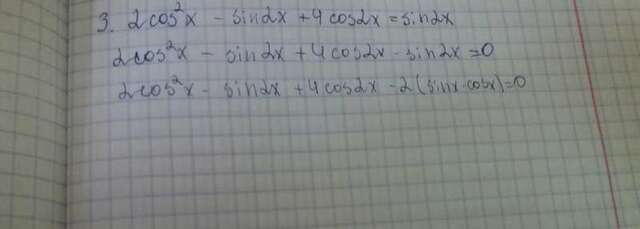 3. 2cos²x - sin2x + 4cos2x = sin2x
2cos²x - sin2x + 4cos2x - sin2x = 0
2cos²x - sin2x + 4cos2x - 2(sinx·cosx) = 0